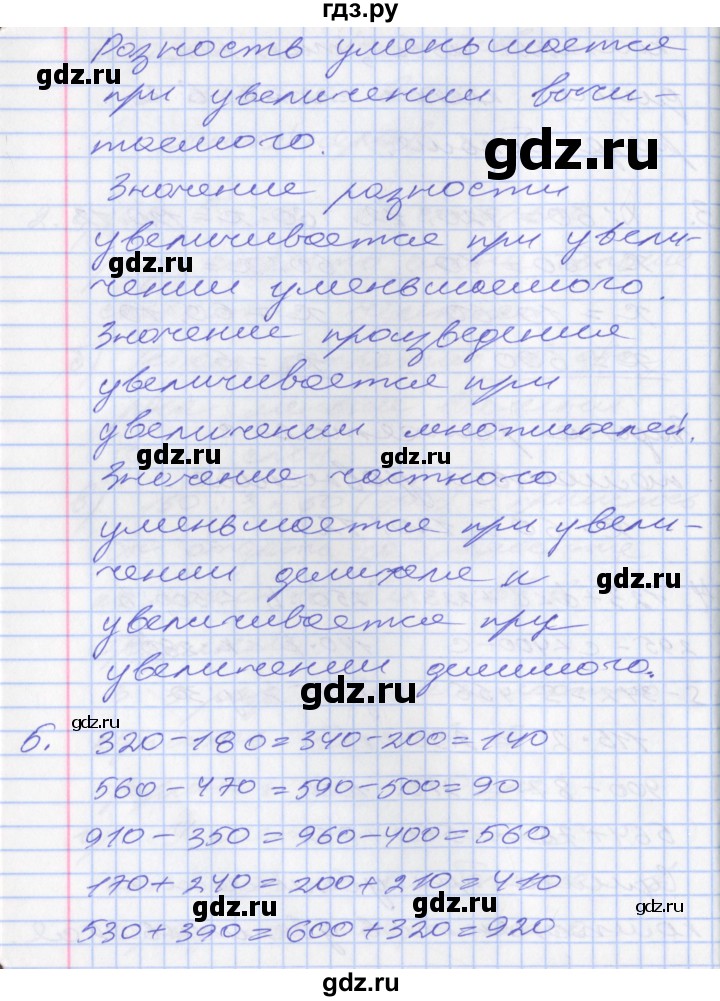 гдз.ру
Разность уменьшается
gdz.ru
при увеличении вычи-
gdz.ru
таемого.
Значение разности
увеличивается при увели-
gdz.ru
чении уменьшаемого.
Значение произведения
увеличивается при
увеличении множителей.
gdz.ru gdz.ru
Значение частного
уменьшается при увели-
чении делителя и
gdz.ru
увеличивается при
увеличении делимого.
gdz.ru
gdz.ru
6. 320-180=340-200=140
560-470=590-500=90
910-350=960-400=560
170+240=200+210=410
gdz.ru gdz.ru
530+390=600+320=920
gdz.ru